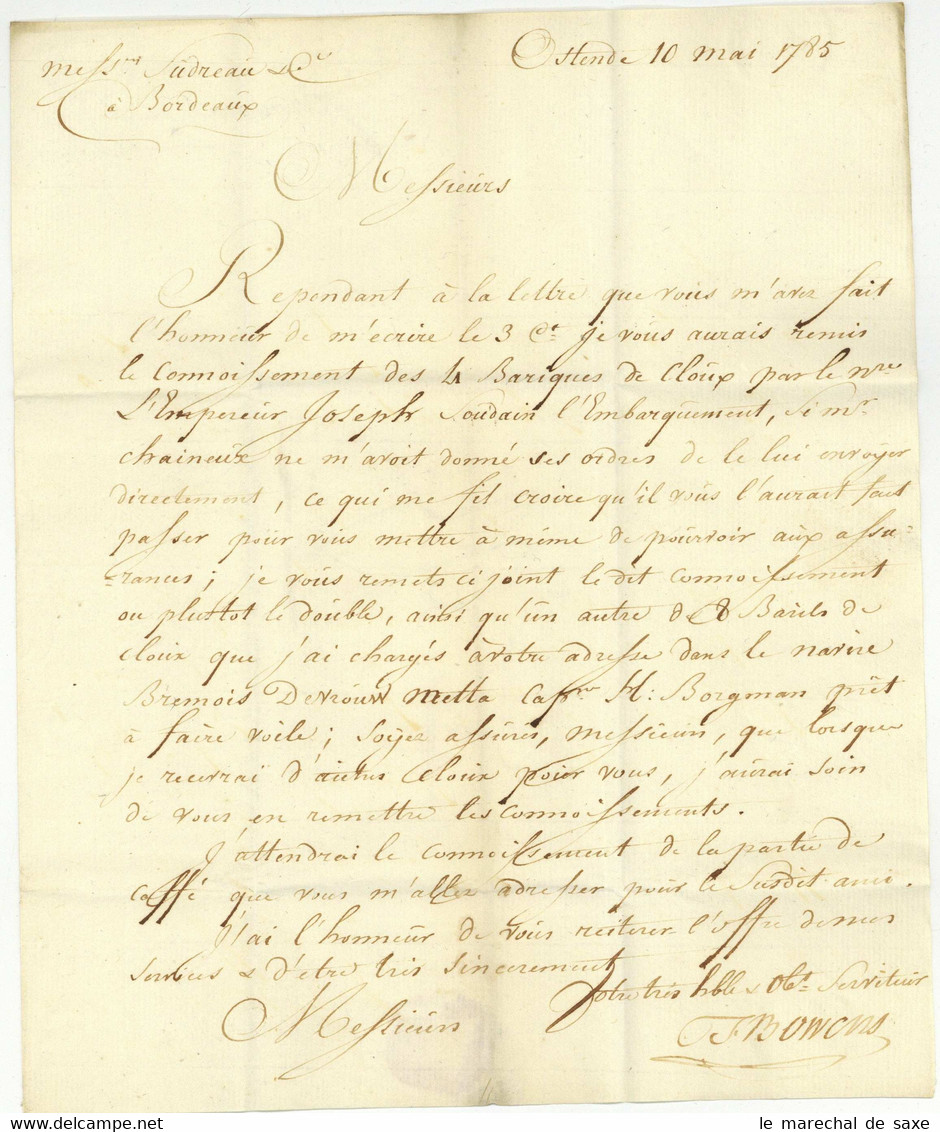 Ostende 10 mai 1785
Mess.rs Sudreau & C.e
à Bordeaux
Messieurs
Rependant à la lettre que vous m'avez fait
l'honneur de m'écrire le 3 C.t je vous aurais remis
le Connoissement des 4 Bariques de Cloux par le n.re
L'Empereur Joseph Soudain l'Embarquement, Si m.r
chaineux ne m'avoit donné ses ordres de le lui envoyer
directement, ce qui me fit croire qu'il vous l'aurait fait
passer pour vous mettre à même de pourvoir aux assu-
-rances; je vous remets ci joint le dit connoissement
ou plustot le double, ainsi qu'un autre de 8 Barils de
cloux que j'ai chargés à votre adresse dans le navire
Bremois De Vrouw Metta Cap.ne H: Borgman prêt
à faire voile; Soyez assurés, messieurs, que lorsque
je recevrai d'autres Cloux pour vous, j'aurai soin
de vous en remettre les connoissements.
J'attendrai le connoissement de la partie de
caffé que vous m'allez adresser pour le Susdit ami.
J'ai l'honneur de vous reiterer l'offre de mes
services & d'etre très sincerement
Votre très hble & Obt Serviteur
Messieurs
TFBowens
le marechal de saxe